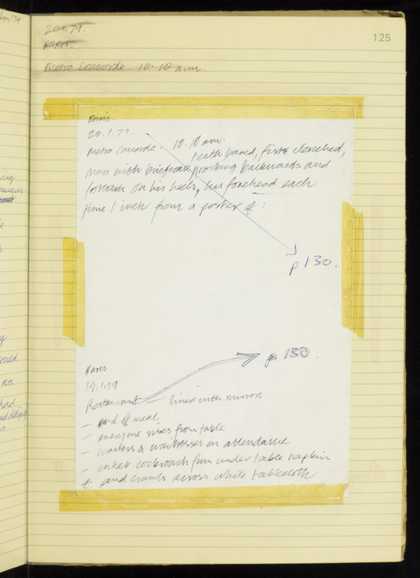 125
20.1.79.
PARIS.
Metro Concorde 10.10 a.m.
Paris
20.1.79
Metro Concorde. 10.10 am.
teeth bared, fists clenched,
man with briefcase, rocking backwards and
forwards on his heels, his forehead each
time 1 inch from a poster of :
p 130.
p 130.
Paris
19.1.79
Restaurant — lined with mirrors
— end of meal
— everyone rises from table
— waiters & waitresses in attendance
— cockroach from under table napkin
and crawls across white tablecloth